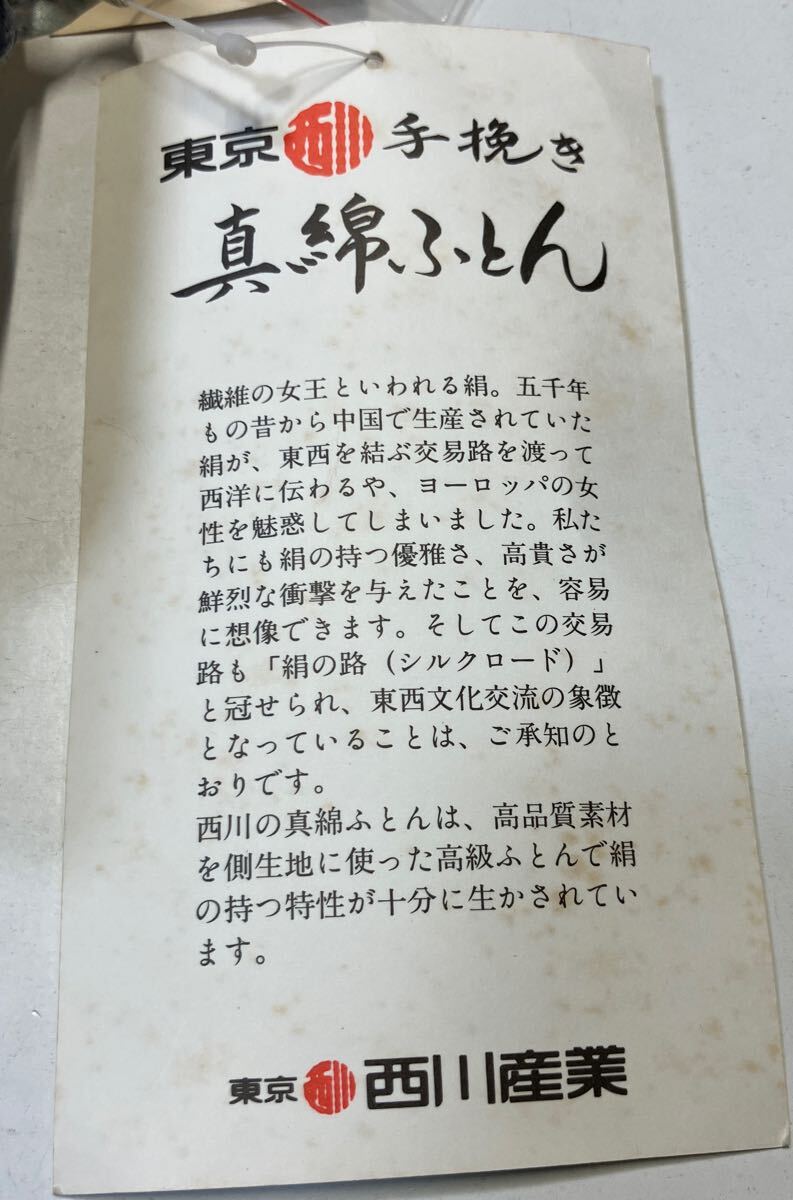 東京 西川 手挽き
真綿ふとん
繊維の女王といわれる絹。五千年
もの昔から中国で生産されていた
絹が、東西を結ぶ交易路を渡って
西洋に伝わるや、ヨーロッパの女
性を魅惑してしまいました。私た
ちにも絹の持つ優雅さ、高貴さが
鮮烈な衝撃を与えたことを、容易
に想像できます。そしてこの交易
路も「絹の路（シルクロード）」
と冠せられ、東西文化交流の象徴
となっていることは、ご承知のと
おりです。
西川の真綿ふとんは、高品質素材
を側生地に使った高級ふとんで絹
の持つ特性が十分に生かされてい
ます。
東京 西川 西川産業